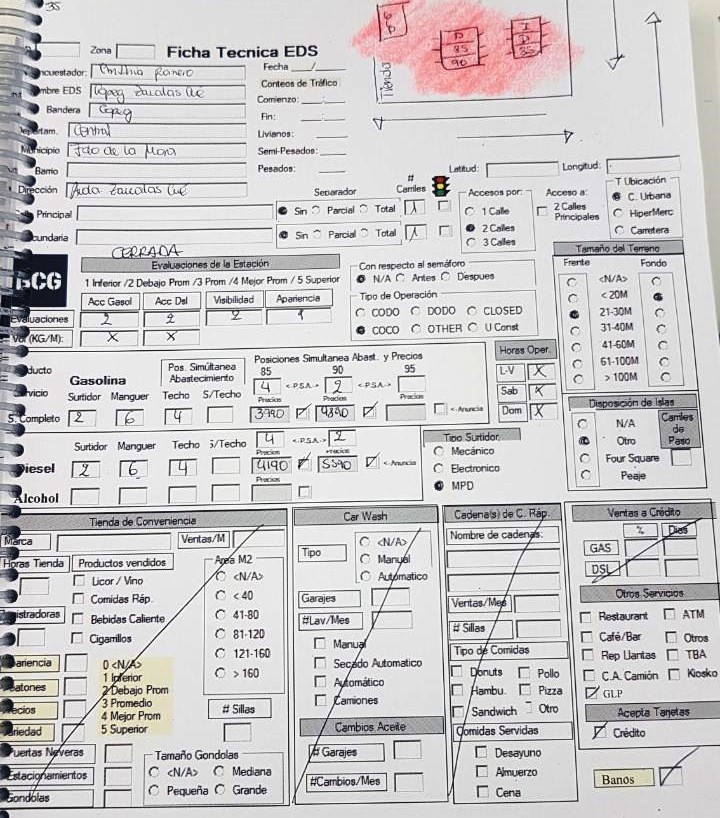 35
Zona
Ficha Tecnica EDS
Fecha __/__
ncuestador: Cinthia Romero
Conteos de Tráfico
mbre EDS Copeg Zavalas Cué
Comienzo: __:__
Bandera Copeg
Fin: __:__
epartam. Central
Livianos:
unicipio Fdo de la Mora
Semi-Pesados:
Barrio
Pesados:
Latitud:
Longitud:
Dirección Avda. Zavalas Cué
D
85
90
D
85
Separador
# Carriles
Principal
Sin Parcial Total 1
cundaria
Sin Parcial Total 1
Accesos por:
1 Calle
2 Calles
3 Calles
Acceso a:
2 Calles Principales
T Ubicación
C. Urbana
HiperMerc
Carretera
CERRADA
CG
Evaluaciones de la Estación
1 Inferior /2 Debajo Prom /3 Prom /4 Mejor Prom / 5 Superior
Acc Gasol Acc Dsl Visibilidad Apariencia
Evaluaciones 2 2 2 1
Vol (KG/M): X X
Con respecto al semáforo
N/A Antes Despues
Tipo de Operación
CODO DODO CLOSED
COCO OTHER U Const
Tamaño del Terreno
Frente Fondo
<N/A>
< 20M
21-30M
31-40M
41-60M
61-100M
> 100M
ducto
Gasolina
Pos. Simúltanea Abastecimiento
Posiciones Simultanea Abast. y Precios
85 90 95
rvicio
Surtidor Manguer Techo S/Techo
4 <-P.S.A.-> 2 <-P.S.A.->
Precios Precios Precios
S. Completo 2 6 4 3990 4890 <-Anuncia
Horas Oper.
L-V X
Sab X
Dom X
Surtidor Manguer Techo S/Techo
4 <-P.S.A.-> 2
Precios Precios
Diesel 2 6 4 4190 5590 <-Anuncia
Precios
Alcohol
Tipo Surtidor
Mecánico
Electronico
MPD
Disposición de Islas
N/A
Otro
Four Square
Peaje
Carriles de Paso
Tienda de Conveniencia
Marca
Ventas/M
Horas Tienda
Productos vendidos
Licor / Vino
Comidas Ráp.
gistradoras
Bebidas Caliente
Cigarrillos
Area M2
<N/A>
< 40
41-80
81-120
121-160
> 160
ariencia
eatones
ecios
riedad
0 <N/A>
1 Inferior
2 Debajo Prom
3 Promedio
4 Mejor Prom
5 Superior
# Sillas
uertas Neveras
Estacionamientos
Gondolas
Tamaño Gondolas
<N/A> Mediana
Pequeña Grande
Car Wash
Tipo
<N/A>
Manual
Automatico
Garajes
#Lav/Mes
Manual
Secado Automatico
Automático
Camiones
Cambios Aceite
# Garajes
#Cambios/Mes
Cadena(s) de C. Ráp.
Nombre de cadenas:
Ventas/Mes
# Sillas
Tipo de Comidas
Donuts Pollo
Hambu. Pizza
Sandwich Otro
Comidas Servidas
Desayuno
Almuerzo
Cena
Ventas a Crédito
% Dias
GAS
DSL
Otros Servicios
Restaurant ATM
Café/Bar Otros
Rep Llantas TBA
C.A. Camión Kiosko
GLP
Acepta Tarjetas
Crédito
Banos